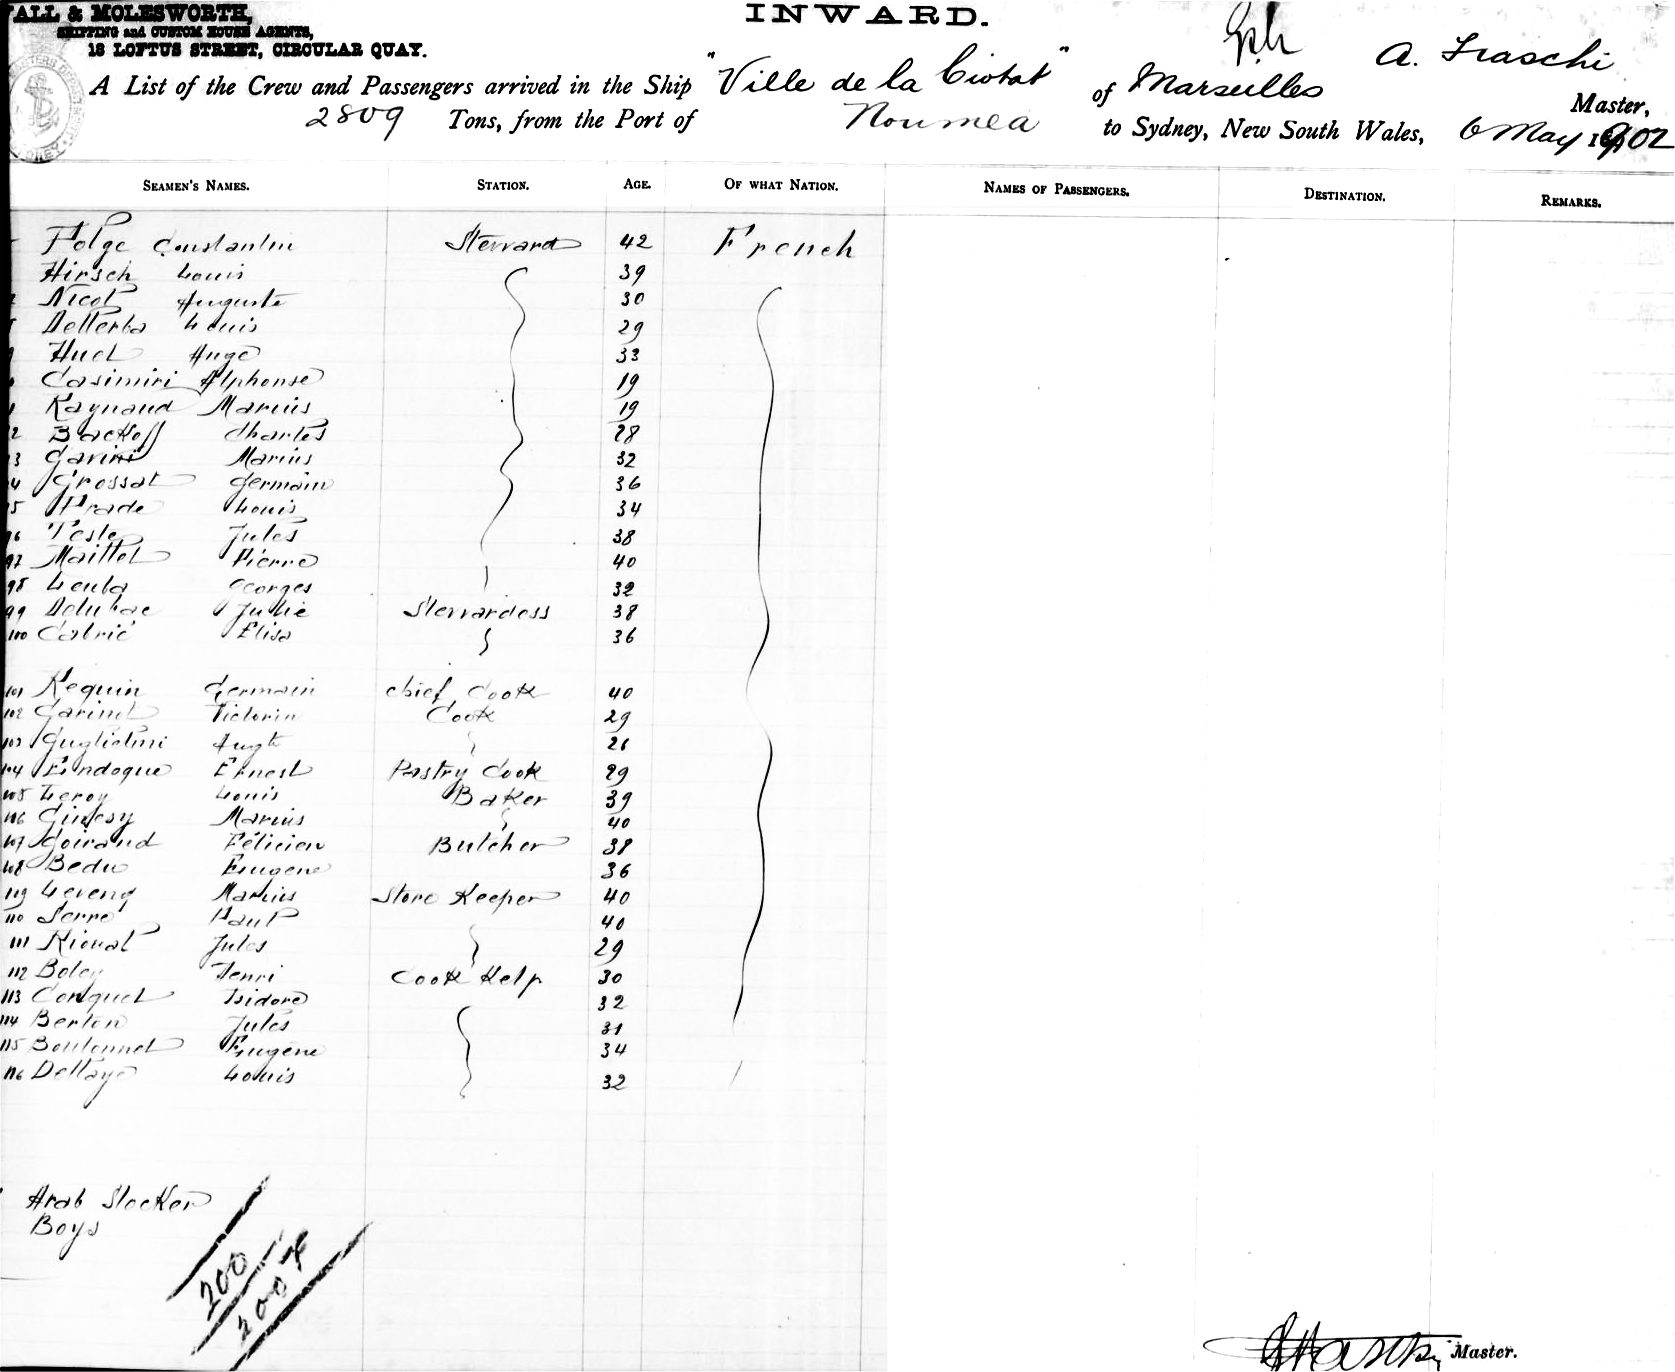 ALL & MOLESWORTH,
SHIPPING and CUSTOM HOUSE AGENTS,
18 LOFTUS STREET, CIRCULAR QUAY.
INWARD.
A. Fraschi
A List of the Crew and Passengers arrived in the Ship "Ville de la Ciotat" of Marseilles Master,
2809 Tons, from the Port of Noumea to Sydney, New South Wales, 6 May 1902
SEAMEN'S NAMES. STATION. AGE. OF WHAT NATION. NAMES OF PASSENGERS. DESTINATION. REMARKS.
Folge Constantin Steward 42 French
Hirsch Louis 39
Nicot Auguste 30
Louis 29
Huel Ange 33
Casimiri Alphonse 19
Raynaud Marius 19
Backoff Charles 28
Gavini Marius 32
Grossat Germain 36
Prade Louis 34
Teste Jules 38
Maillet Pierre 40
98 Leuba Georges 32
99 Delubac Julie Stewardess 38
100 Cabrié Elisa 36
101 Requin Germain Chief Cook 40
102 Garinot Victorin Cook 29
103 Guglielmi Augte 26
104 Endogue Ernest Pastry Cook 29
105 Leroy Louis Baker 39
106 Giniesy Marius 40
107 Goirand Félicien Butcher 38
108 Bedu Eugene 36
109 Leveng Marius Store Keeper 40
110 Serre Paul 40
111 Rional Jules 29
112 Boley Henri Cook Help 30
113 Conquet Isidore 32
114 Berton Jules 31
115 Boutonnet Eugène 34
116 Dellaye Louis 32
Arab Stocker
Boys
200
200
Master.